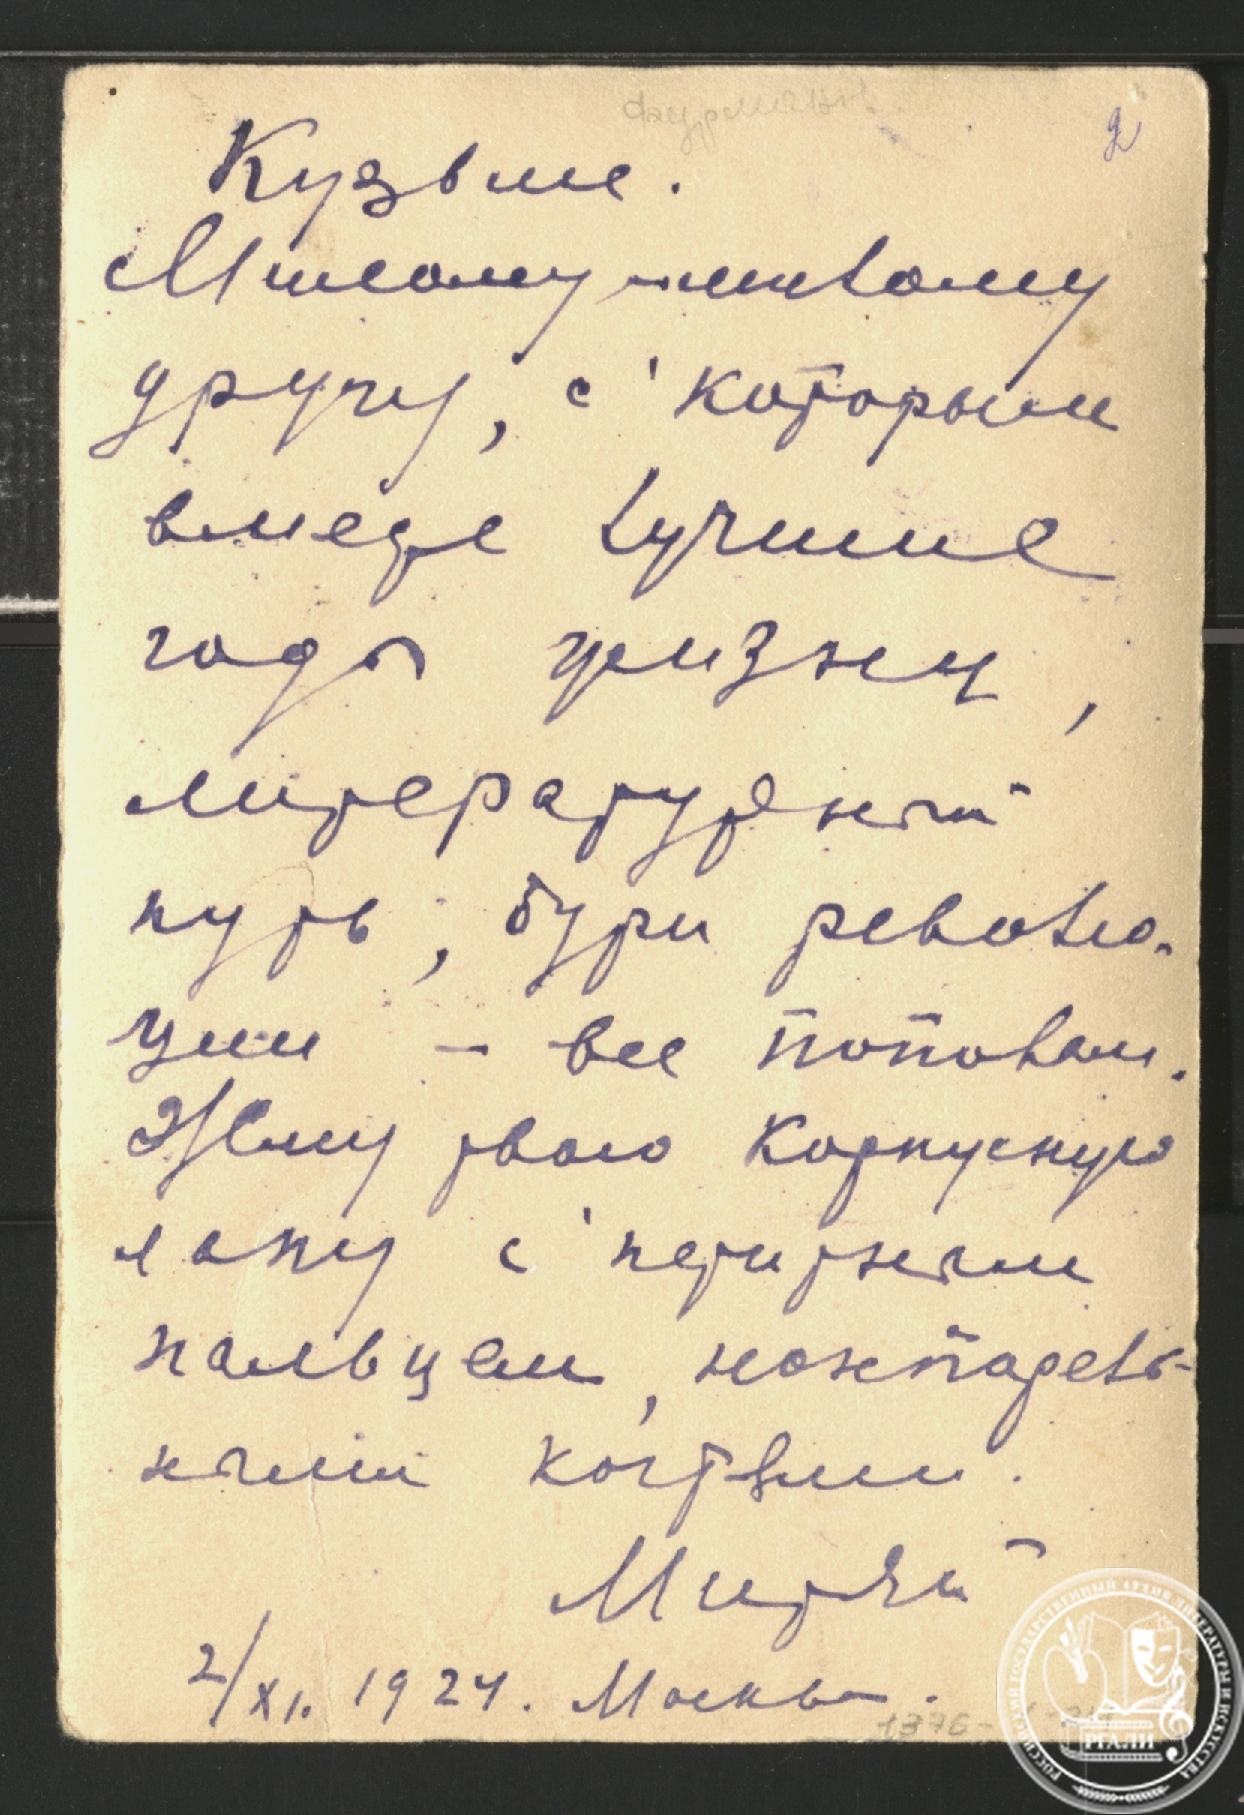 Фурманов
2
Кузьме.
Милому-милому
другу, с которым
вместе лучшие
годы жизни,
литературный
путь, бури револю-
ции – все пополам.
Жму твою корпусную
лапу с
пальцем,
когтями.
Митяй
2/XI. 1924. Москва.
1376-
РОССИЙСКИЙ ГОСУДАРСТВЕННЫЙ АРХИВ ЛИТЕРАТУРЫ И ИСКУССТВА
РГАЛИ